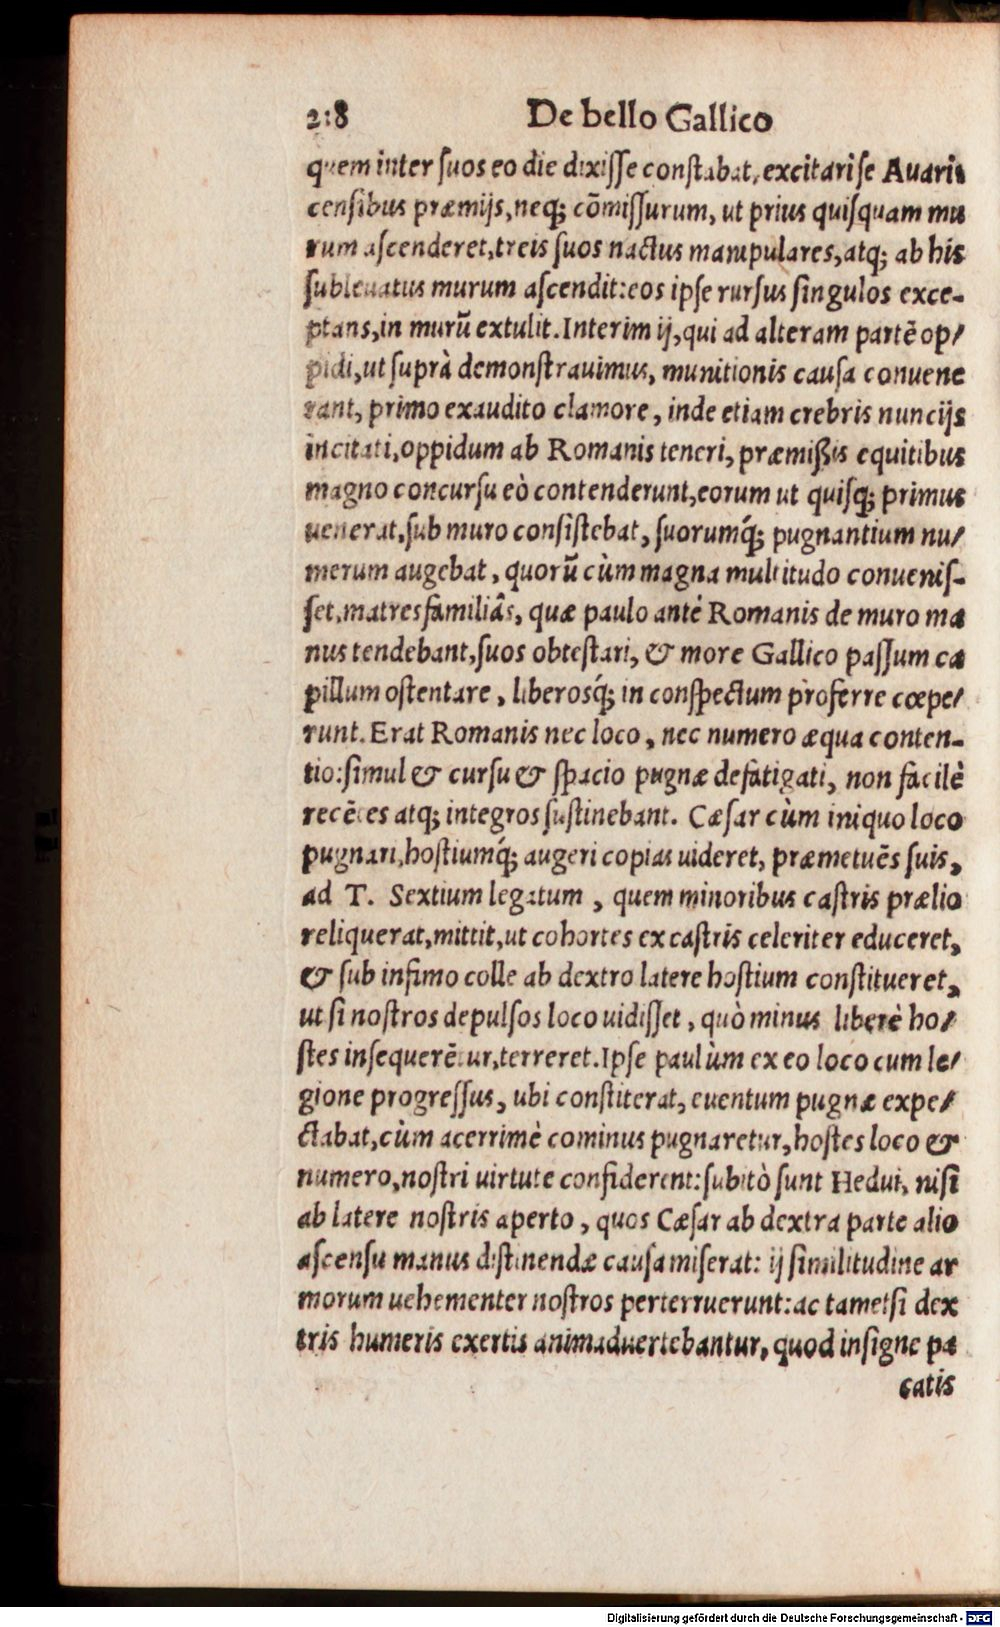 218 De bello Gallico
quem inter ſuos eo die dixiſſe conſtabat, excitari ſe Auari
cenſibus præmijs, neq; cõmiſſurum, ut prius quiſquam mu
rum aſcenderet, treis ſuos nactus manipulares, atq; ab his
ſubleuatus murum aſcendit: eos ipſe rurſus ſingulos exce-
ptans, in murũ extulit. Interim ij, qui ad alteram partẽ op/
pidi, ut ſuprà demonſtrauimus, munitionis cauſa conuene
rant, primo exaudito clamore, inde etiam crebris nuncijs
incitati, oppidum ab Romanis teneri, præmißis equitibus
magno concurſu eò contenderunt, eorum ut quiſq; primus
uenerat, ſub muro conſiſtebat, ſuorumq́; pugnantium nu/
merum augebat, quorũ cùm magna multitudo conueniſ-
ſet, matresfamiliâs, quæ paulo antè Romanis de muro ma
nus tendebant, ſuos obteſtari, & more Gallico paſſum ca
pillum oſtentare, liberosq́; in conſpectum proferre cœpe/
runt. Erat Romanis nec loco, nec numero æqua conten-
tio: ſimul & curſu & ſpacio pugnæ defatigati, non facilè
recẽtes atq; integros ſuſtinebant. Cæſar cùm iniquo loco
pugnari, hoſtiumq́; augeri copias uideret, præmetuẽs ſuis,
ad T. Sextium legatum, quem minoribus caſtris prælio
reliquerat, mittit, ut cohortes ex caſtris celeriter educeret,
& ſub infimo colle ab dextro latere hoſtium conſtitueret,
ut ſi noſtros depulſos loco uidiſſet, quò minus liberè ho/
ſtes inſequerẽtur, terreret. Ipſe paulùm ex eo loco cum le/
gione progreſſus, ubi conſtiterat, euentum pugnæ expe/
ctabat, cùm acerrimè cominus pugnaretur, hoſtes loco &
numero, noſtri uirtute confiderent: ſubitò ſunt Hedui, niſi
ab latere noſtris aperto, quos Cæſar ab dextra parte alio
aſcenſu manus diſtinendæ cauſa miſerat: ij ſimilitudine ar
morum uehementer noſtros perterruerunt: ac tametſi dex
tris humeris exertis animaduertebantur, quod inſigne pa
catis
Digitalisierung gefördert durch die Deutsche Forschungsgemeinschaft - DFG